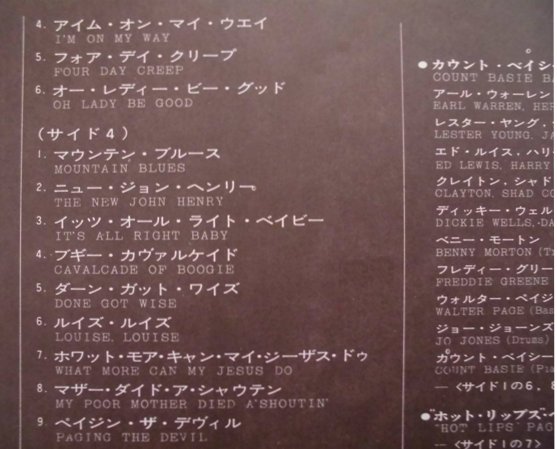 4. アイム・オン・マイ・ウエイ
I'M ON MY WAY
5. フォア・デイ・クリープ
FOUR DAY CREEP
6. オー・レディー・ビー・グッド
OH LADY BE GOOD
(サイド4)
1. マウンテン・ブルース
MOUNTAIN BLUES
2. ニュー・ジョン・ヘンリー
THE NEW JOHN HENRY
3. イッツ・オール・ライト・ベイビー
IT'S ALL RIGHT BABY
4. ブギー・カヴァルケイド
CAVALCADE OF BOOGIE
5. ダーン・ガット・ワイズ
DONE GOT WISE
6. ルイズ・ルイズ
LOUISE, LOUISE
7. ホワット・モア・キャン・マイ・ジーザス・ドゥ
WHAT MORE CAN MY JESUS DO
8. マザー・ダイド・ア・シャウテン
MY POOR MOTHER DIED A'SHOUTIN'
9. ペイジン・ザ・デヴィル
PAGING THE DEVIL
●カウント・ベイシ
COUNT BASIE BA
アール・ウォーレン
EARL WARREN, HER
レスター・ヤング,
LESTER YOUNG, JA
エド・ルイス, ハリ
ED LEWIS, HARRY
クレイトン, シャド
CLAYTON, SHAD CO
ディッキー・ウェル
DICKIE WELLS, DA
ベニー・モートン
BENNY MORTON (Tr
フレディー・グリー
FREDDIE GREENE
ウォルター・ペイジ
WALTER PAGE (Bas
ジョー・ジョーンズ
JO JONES (Drums)
カウント・ベイシー
COUNT BASIE (Pia
— 〈サイド1の6, 8
●"ホット・リップス"・
"HOT LIPS" PAG
— 〈サイド1の7〉